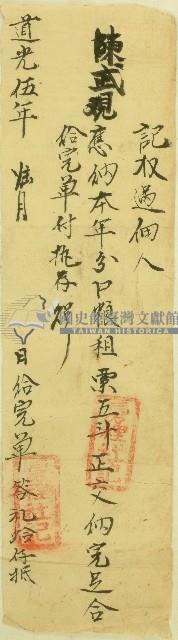 記收過佃人
陳武覌
應納本年分口粮租粟五斗正交納完足合
給完单付執存炤
道光伍年 月 日給完单
國史館臺灣文獻館
TAIWAN HISTORICA